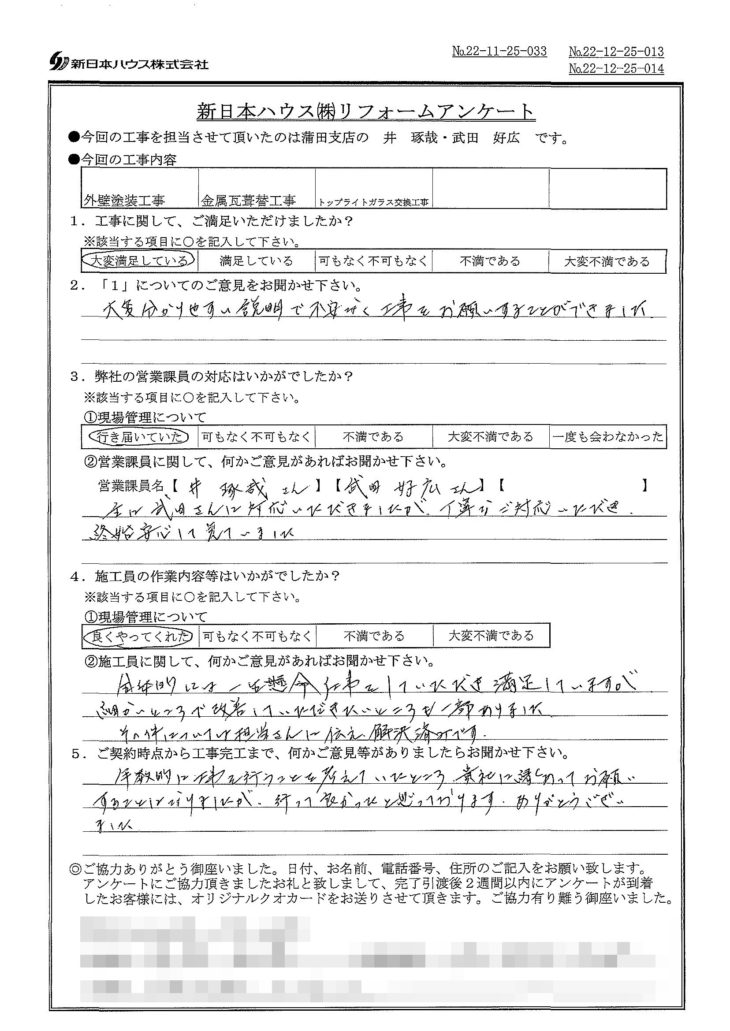 新日本ハウス株式会社
№22-11-25-033 №22-12-25-013
№22-12-25-014
新日本ハウス㈱リフォームアンケート
●今回の工事を担当させて頂いたのは蒲田支店の 井 琢哉・武田 好広 です。
●今回の工事内容
外壁塗装工事 金属瓦葺替工事 トップライトガラス交換工事
1．工事に関して、ご満足いただけましたか？
※該当する項目に○を記入して下さい。
大変満足している 満足している 可もなく不可もなく 不満である 大変不満である
2．「1」についてのご意見をお聞かせ下さい。
大変分かりやすい説明で不安なく工事をお願いすることができました
3．弊社の営業課員の対応はいかがでしたか？
※該当する項目に○を記入して下さい。
①現場管理について
行き届いていた 可もなく不可もなく 不満である 大変不満である 一度も会わなかった
②営業課員に関して、何かご意見があればお聞かせ下さい。
営業課員名【 井 琢哉さん 】【 武田 好広さん 】【 】
主に武田さんに対応いただきましたが、丁寧なご対応いただき、
終始安心して見ていました
4．施工員の作業内容等はいかがでしたか？
※該当する項目に○を記入して下さい。
①現場管理について
良くやってくれた 可もなく不可もなく 不満である 大変不満である
②施工員に関して、何かご意見があればお聞かせ下さい。
全体的には一生懸命仕事をしていただき満足していますが
細かいところで改善していただきたいところも一部ありました
その件については担当さんに伝え解決済みです。
5．ご契約時点から工事完工まで、何かご意見等がありましたらお聞かせ下さい。
年数的に工事を行うことを考えていたところ、貴社に

することになりましたが、行って良かったと思っております。ありがとうござい
ました
◎ご協力ありがとう御座いました。日付、お名前、電話番号、住所のご記入をお願い致します。
アンケートにご協力頂きましたお礼と致しまして、完了引渡後2週間以内にアンケートが到着
したお客様には、オリジナルクオカードをお送りさせて頂きます。ご協力有り難う御座いました。